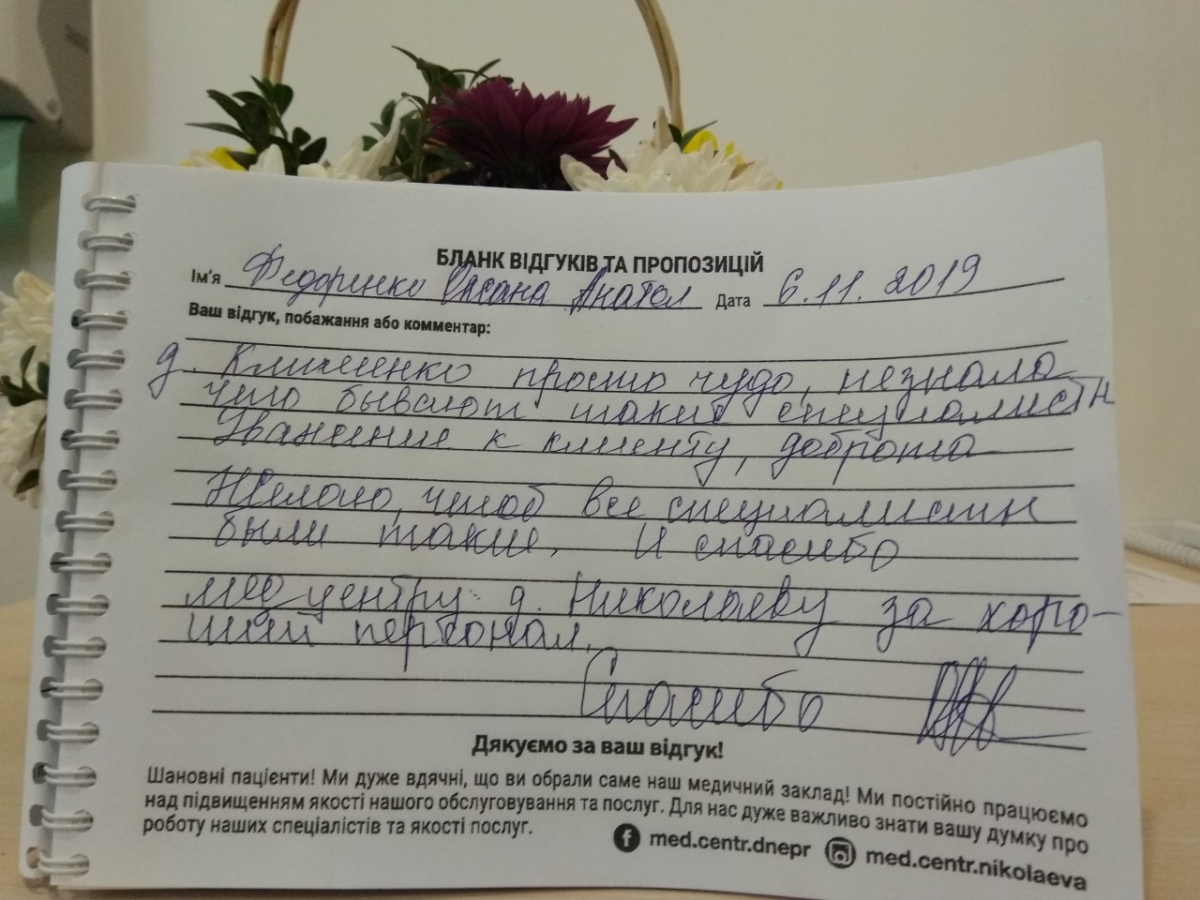 БЛАНК ВІДГУКІВ ТА ПРОПОЗИЦІЙ
Ім'я Федоренко Оксана Анатол Дата 6.11.2019
Ваш відгук, побажання або комментар:
д. Клименко просто чудо, незнала
что бывают такие специалисты
Уважение к клиенту, доброта
Желаю, чтоб все специалисты
были такие, И спасибо
мед центру д. Николаеву за хоро-
ший персонал.
Спасибо
Дякуємо за ваш відгук!
Шановні пацієнти! Ми дуже вдячні, що ви обрали саме наш медичний заклад! Ми постійно працюємо
над підвищенням якості нашого обслуговування та послуг. Для нас дуже важливо знати вашу думку про
роботу наших спеціалістів та якості послуг.
med.centr.dnepr med.centr.nikolaeva